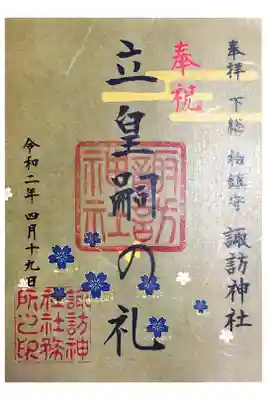 奉拝 下総 柏鎮守 諏訪神社
奉祝
立皇嗣の礼
令和二年四月十九日
諏訪神
社社務
所之印